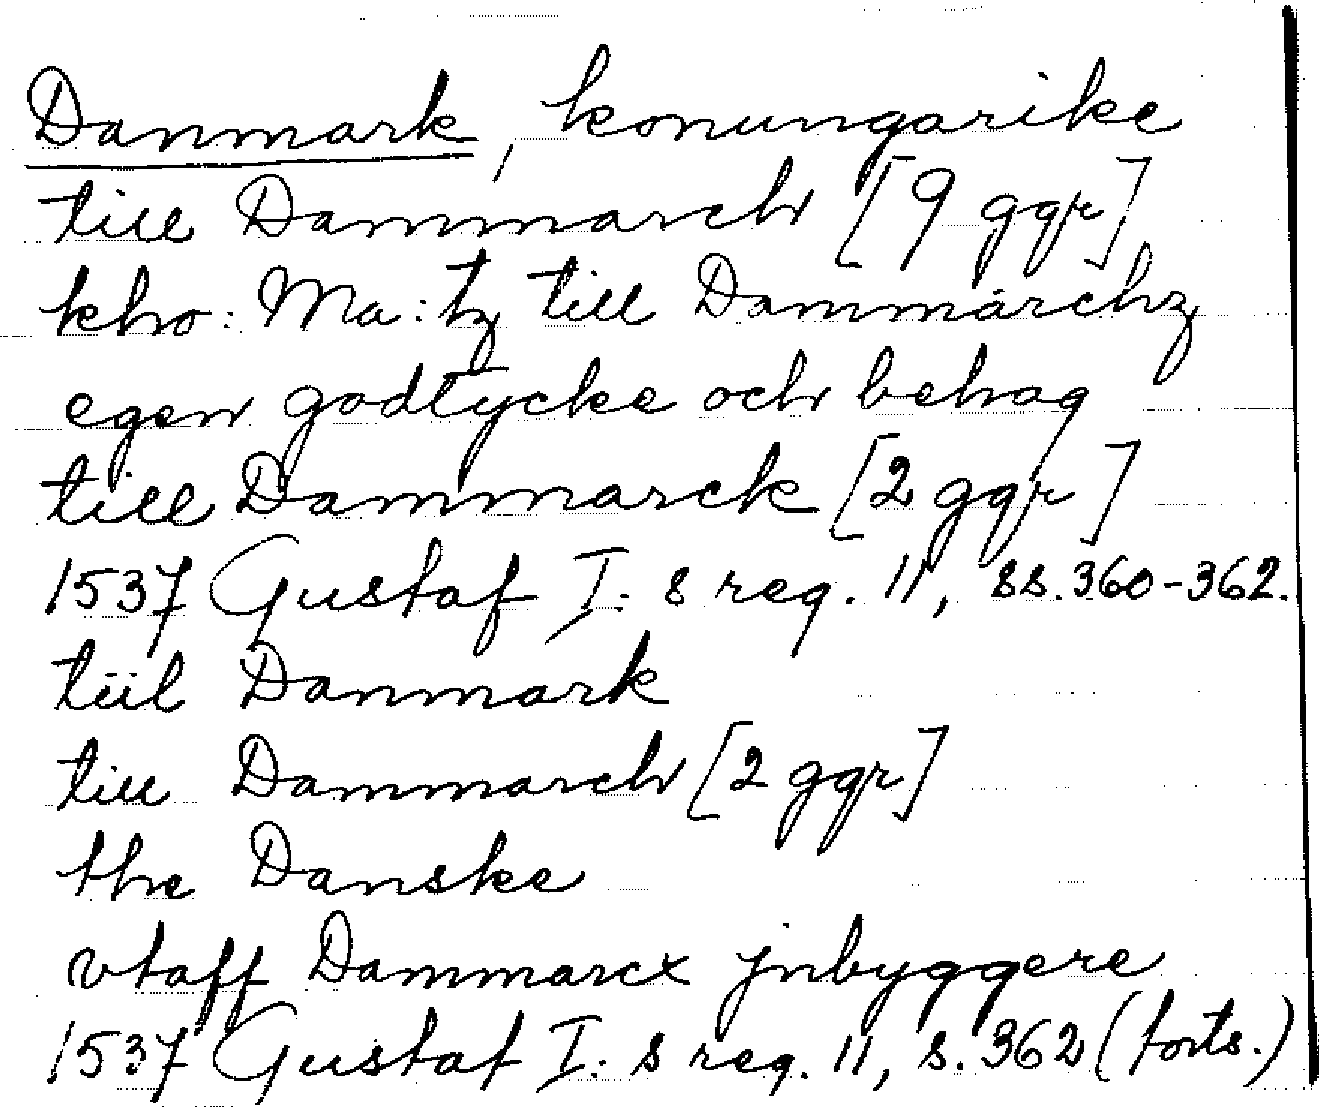 Danmark, konungarike
till Dammarch [9 ggr]
kho: Ma:tz till Dammarchz
egen godtycke och behag
till Dammarck [2 ggr]
1537 Gustaf I:s reg. 11, ss. 360-362.
tiil Danmark
till Dammarch [2 ggr]
the Danske
vtaff Dammarcx jnbyggere
1537 Gustaf I:s reg. 11, s. 362 (forts.)